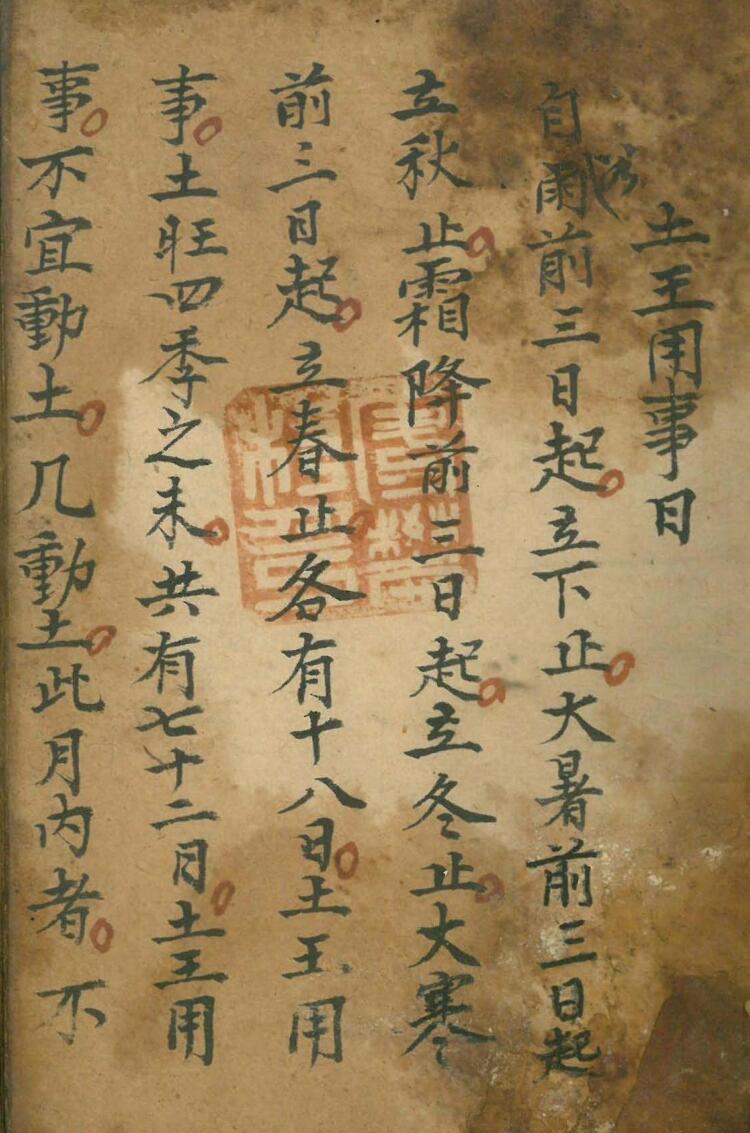 土王用事日
自谷雨前三日起。立下止。大暑前三日起
立秋止。霜降前三日起。立冬止。大寒
前三日起。立春止。各有十八日。土王用
事。土旺四季之末。共有七十二日。土王用
事。不宜動土。几動土。此月内者。不